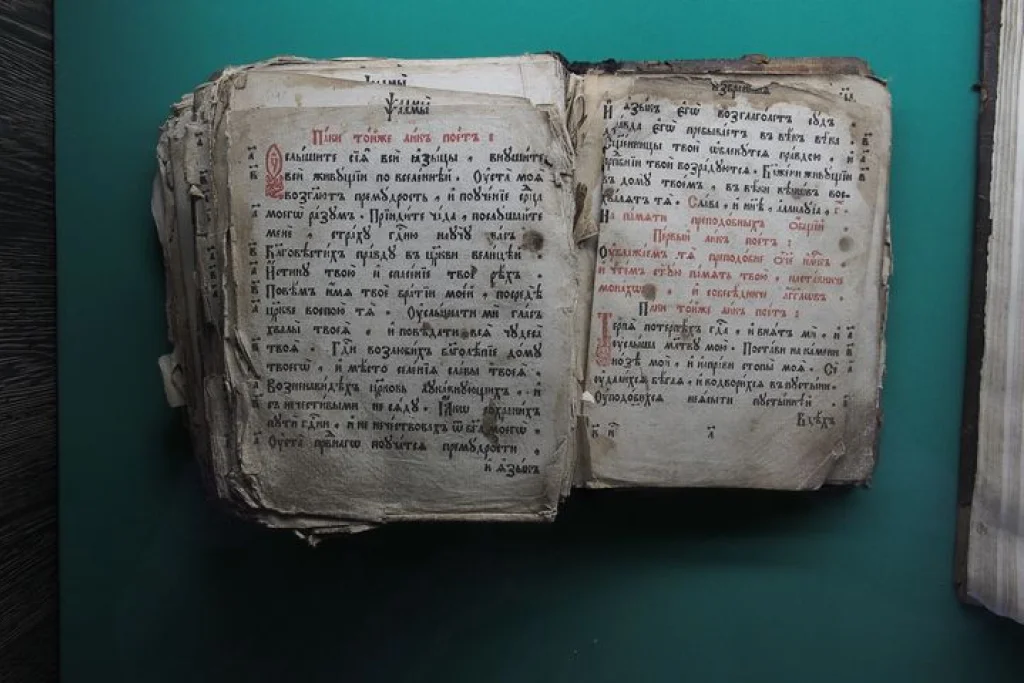 Ѱалмы̀
Па́ки то́йже ли́къ пое́тъ :
Ѹслы́шите сїѧ̀ всѝ ꙗ҆зы́цы , внꙋши́те
всѝ живꙋ́щїи по вселе́ннѣй . Оу҆ста̀ моѧ̀
возглю́тъ премꙋ́дрость , и҆ поꙋче́нїе се́рдца
моегѡ̀ ра́зꙋмъ . Прїиди́те ча́да , послꙋ́шайте
менѐ , стра́хꙋ гдⷭ҇ню наꙋчꙋ̀ ва́съ .
Бл҃говѣсти́хъ пра́вдꙋ въ цр҃кви вели́цѣй
И҆́стинꙋ твою̀ и҆ спасе́нїе твоѐ рѣ́хъ .
Повѣ́мъ и҆́мѧ твоѐ бра́тїи мое́й , посредѣ̀
цр҃кве воспою́ тѧ . Оу҆слы́шати мѝ гла́съ
хвалы̀ твоеѧ̀ . и҆ повѣ́дати всѧ̀ чꙋдеса̀
твоѧ̀ . Гдⷭ҇и возлюби́хъ бл҃голѣ́пїе до́мꙋ
твоегѡ̀ , и҆ мѣ́сто селе́нїѧ сла́вы твоеѧ̀ .
Возненави́дѣхъ цр҃ковь лꙋка́внꙋющихъ , и҆
съ нечести́выми не сѧ́дꙋ . Ꙗ҆́кѡ сохрани́хъ
пꙋти̑ гдⷭ҇ни , и҆ не нече́ствовахъ ѿ бг҃а моегѡ̀ .
Оу҆ста̀ првⷣнагѡ поꙋча́тсѧ премꙋ́дрости ,
и҆ ꙗ҆зы́къ
и҆збра́нныѧ
И҆ ꙗ҆зы́къ є҆гѡ̀ возглаго́летъ сꙋ́дъ
Пра́вда є҆гѡ̀ пребыва́етъ въ вѣ́къ вѣ́ка
Сщ҃е́нницы твоѝ ѡ҆блекꙋ́тсѧ пра́вдою , и҆
прпⷣбнїи твоѝ возра́дꙋютсѧ . Бл҃же́ни живꙋ́щїи
въ домꙋ̀ твое́мъ , въ вѣ́ки вѣкѡ́въ вос-
хва́лѧтъ тѧ̀ . Сла́ва , и҆ нн҃ѣ , а҆ллилꙋ́їа , г҃ .
На па́мѧти преподо́бныхъ ѻ҆́бщїй
Пе́рвый ли́къ пое́тъ :
Оу҆блажа́емъ тѧ̀ преподо́бне ѻ҆́тче и҆́м҃къ
и҆ чте́мъ ст҃ꙋ́ю па́мѧть твою̀ , наста́вниче
мона́хѡвъ , и҆ собесѣ́дниче а҆́гг҃лѡвъ .
Па́ки то́йже ли́къ пое́тъ :
Терпѧ̀ потерпѣ́хъ гдⷭ҇а , и҆ внѧ́тъ мѝ , и҆
оу҆слы́ша мл҃твꙋ мою̀ . Поста́ви на ка́мени
но́зѣ моѝ , и҆ и҆спра́ви стопы̑ моѧ̀ . Сѐ
оу҆дали́хсѧ бѣ́гаѧ , и҆ водвори́хсѧ въ пꙋсты́ни .
Оу҆подо́бихсѧ неꙗ́сыти пꙋсты́ннѣй .
Б҃ и҆
Л҃
Бдѣ́хъ